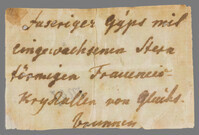 Faseriger Gÿps mit
eingewachsenen Stern
förmigen Fraueneis-
Krystallen von Glücks-
brunnen.